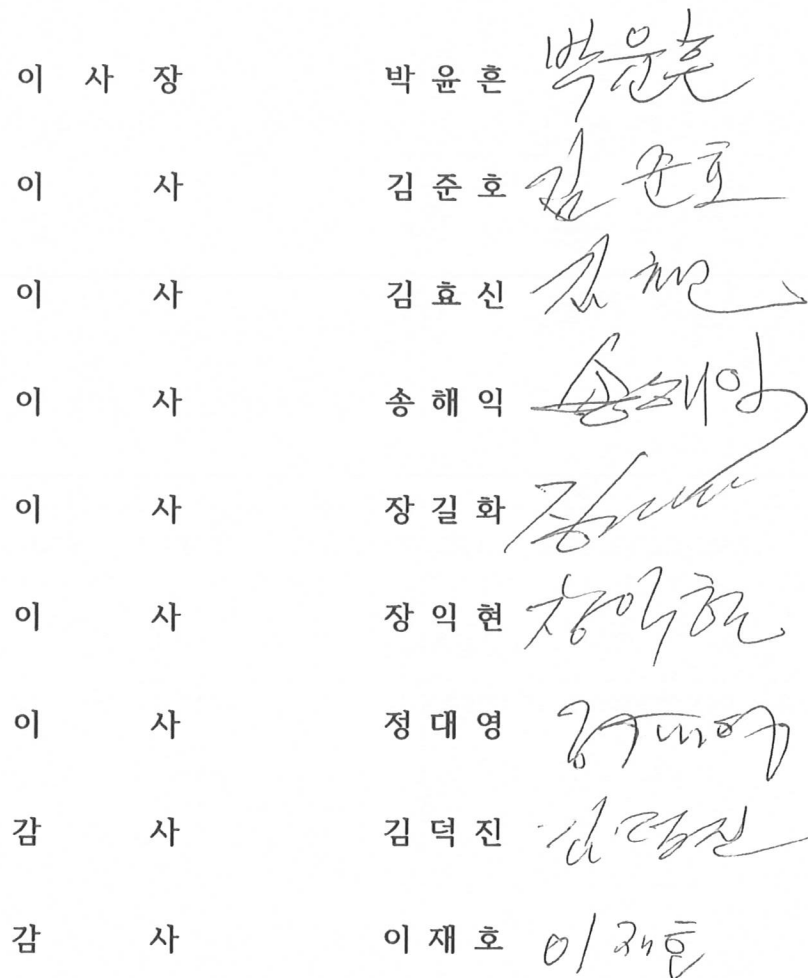 이 사 장 박 윤 흔 박윤흔
이 사 김 준 호 김준호
이 사 김 효 신
이 사 송 해 익 송해익
이 사 장 길 화
이 사 장 익 현 장익현
이 사 정 대 영
감 사 김 덕 진 김덕진
감 사 이 재 호 이재호